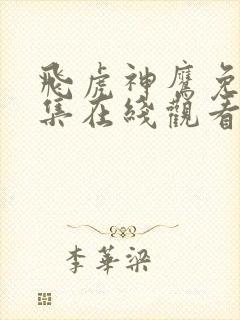 飛虎神鷹免
集在綫觀看
李華梁